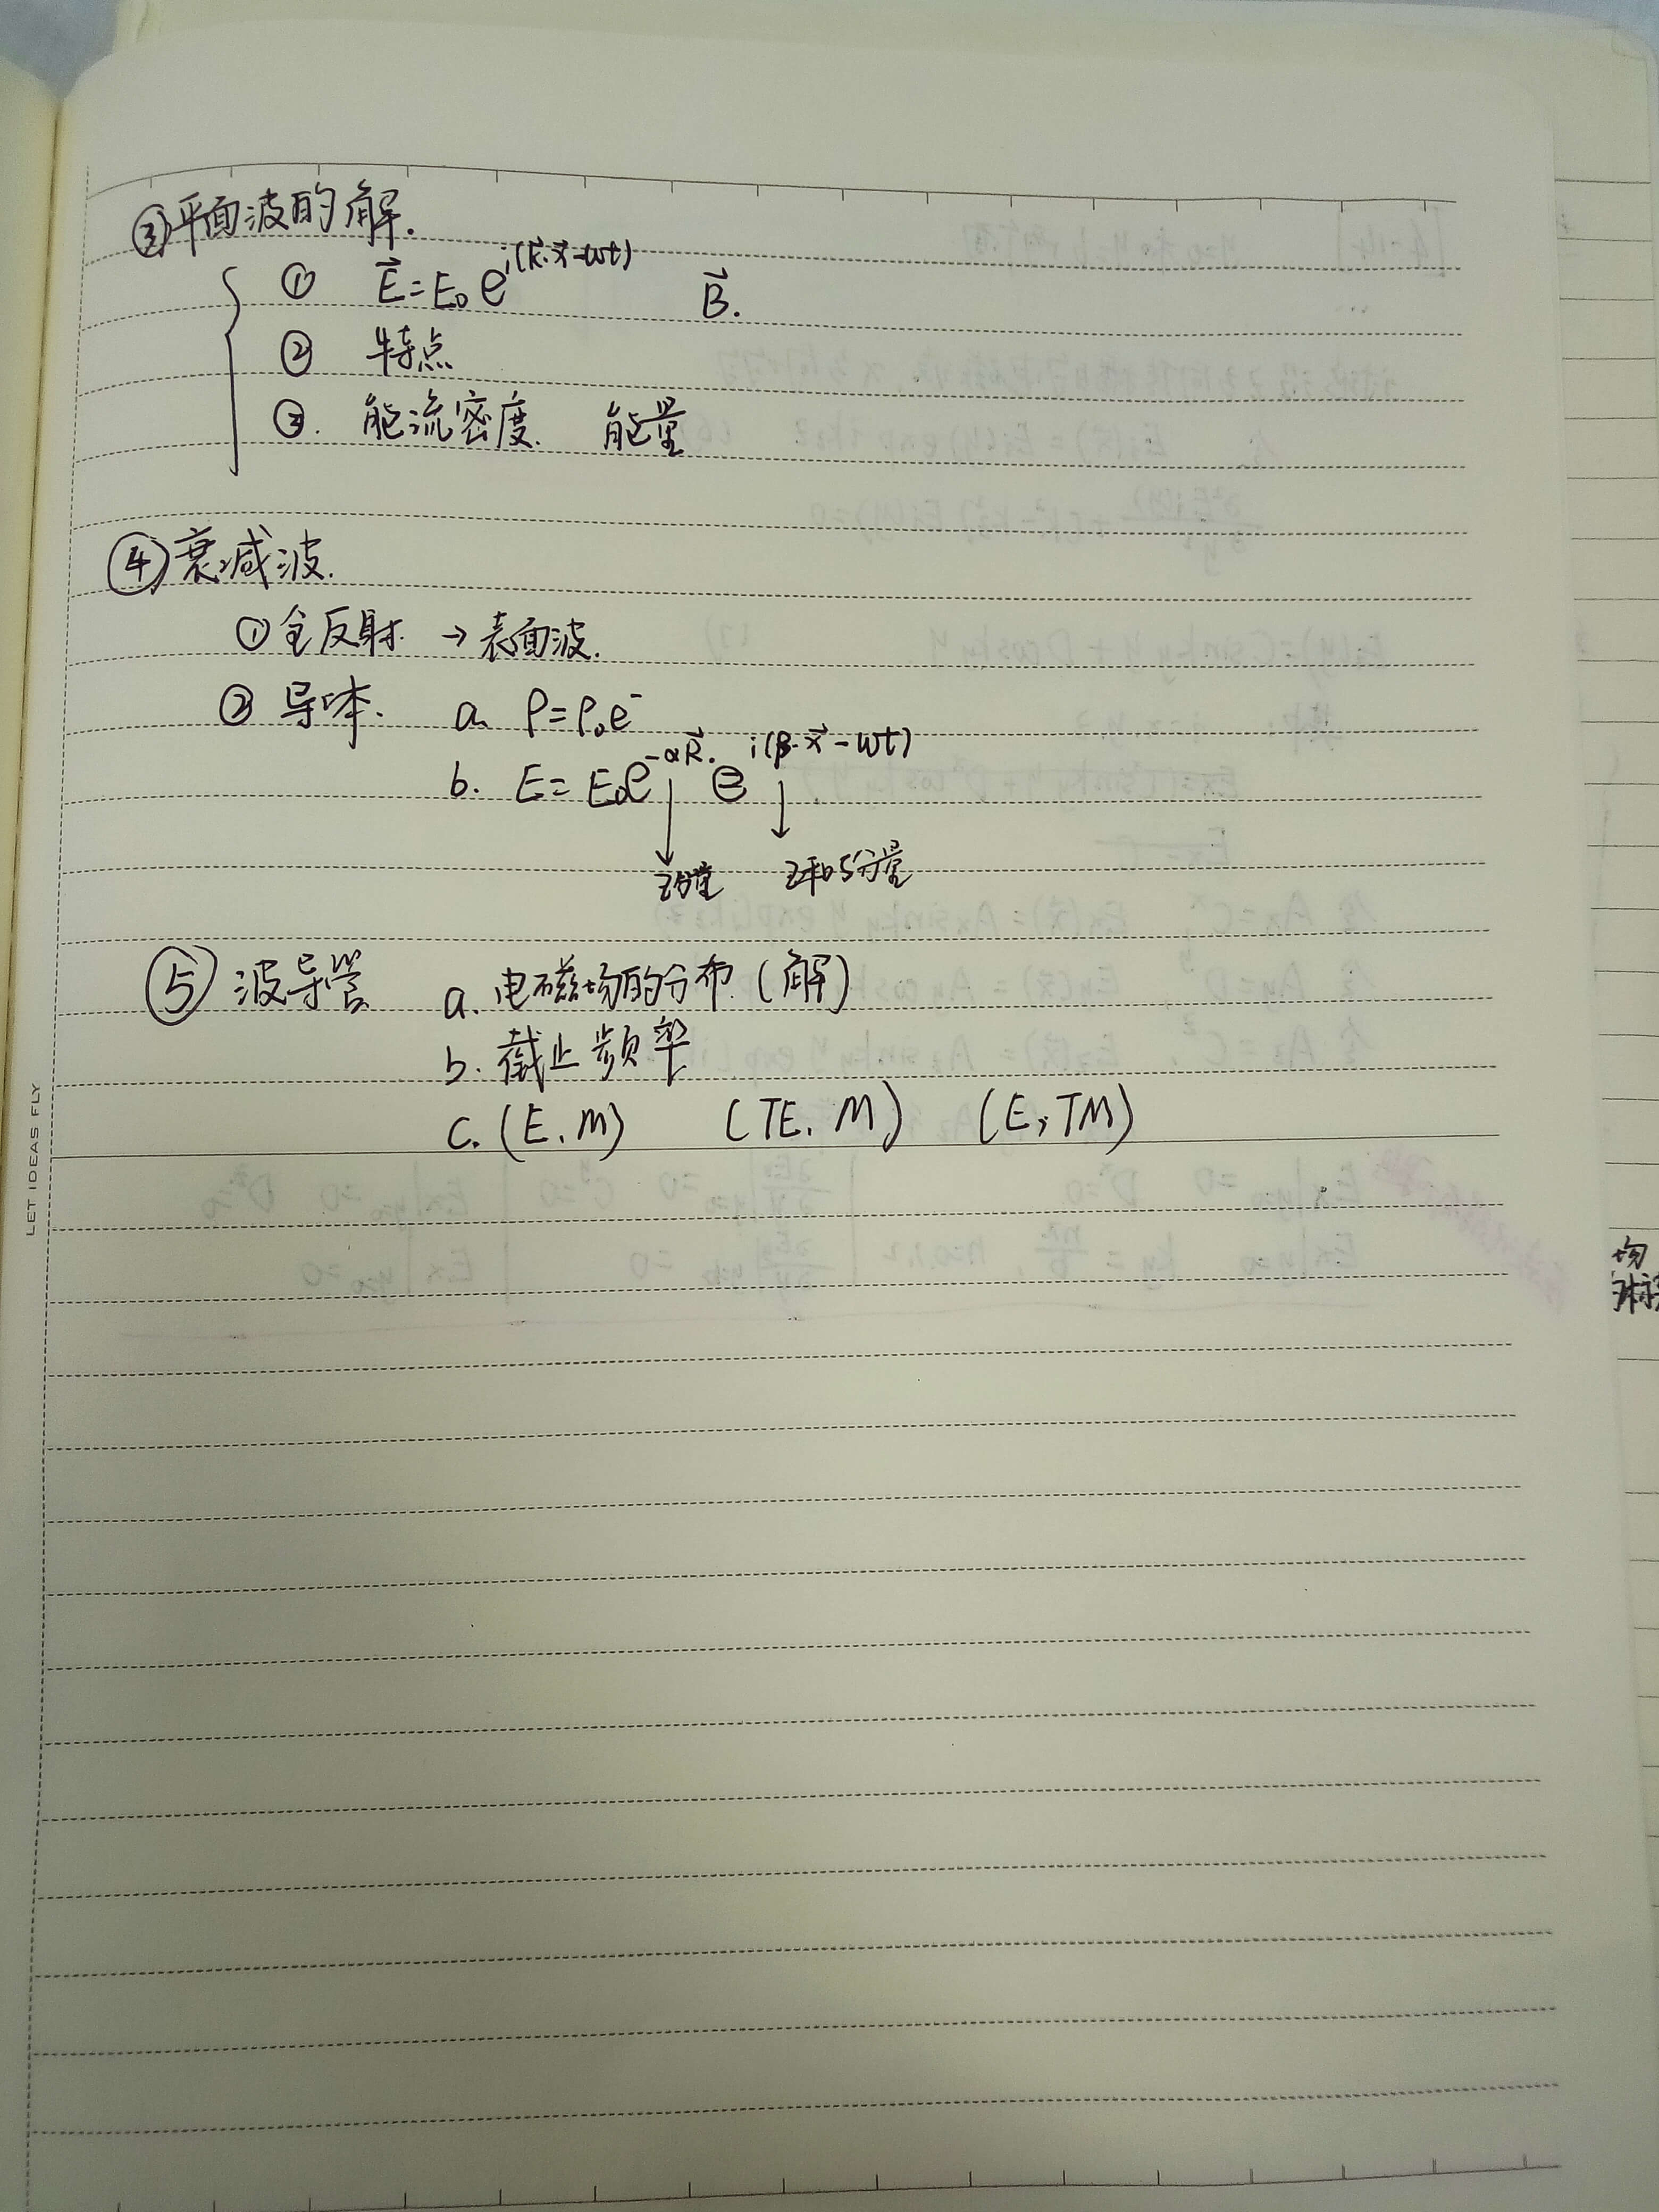 ③平面波的解.
① \vec{E}=E₀e^{i(\vec{k}·\vec{x}-ωt)} \vec{B}.
② 特点
③. 能流密度. 能量
④衰减波.
①全反射. →表面波.
② 导体. a. ρ=ρ₀e^{-}
b. E=E₀e^{-α\vec{R}.} e^{i(β·\vec{x}-ωt)}
↓ ↓
z分量 z和 分量
⑤ 波导管 a. 电磁场的分布.(解)
b. 截止频率
c. (E.M) (TE.M) (E,TM)
LET IDEAS FLY